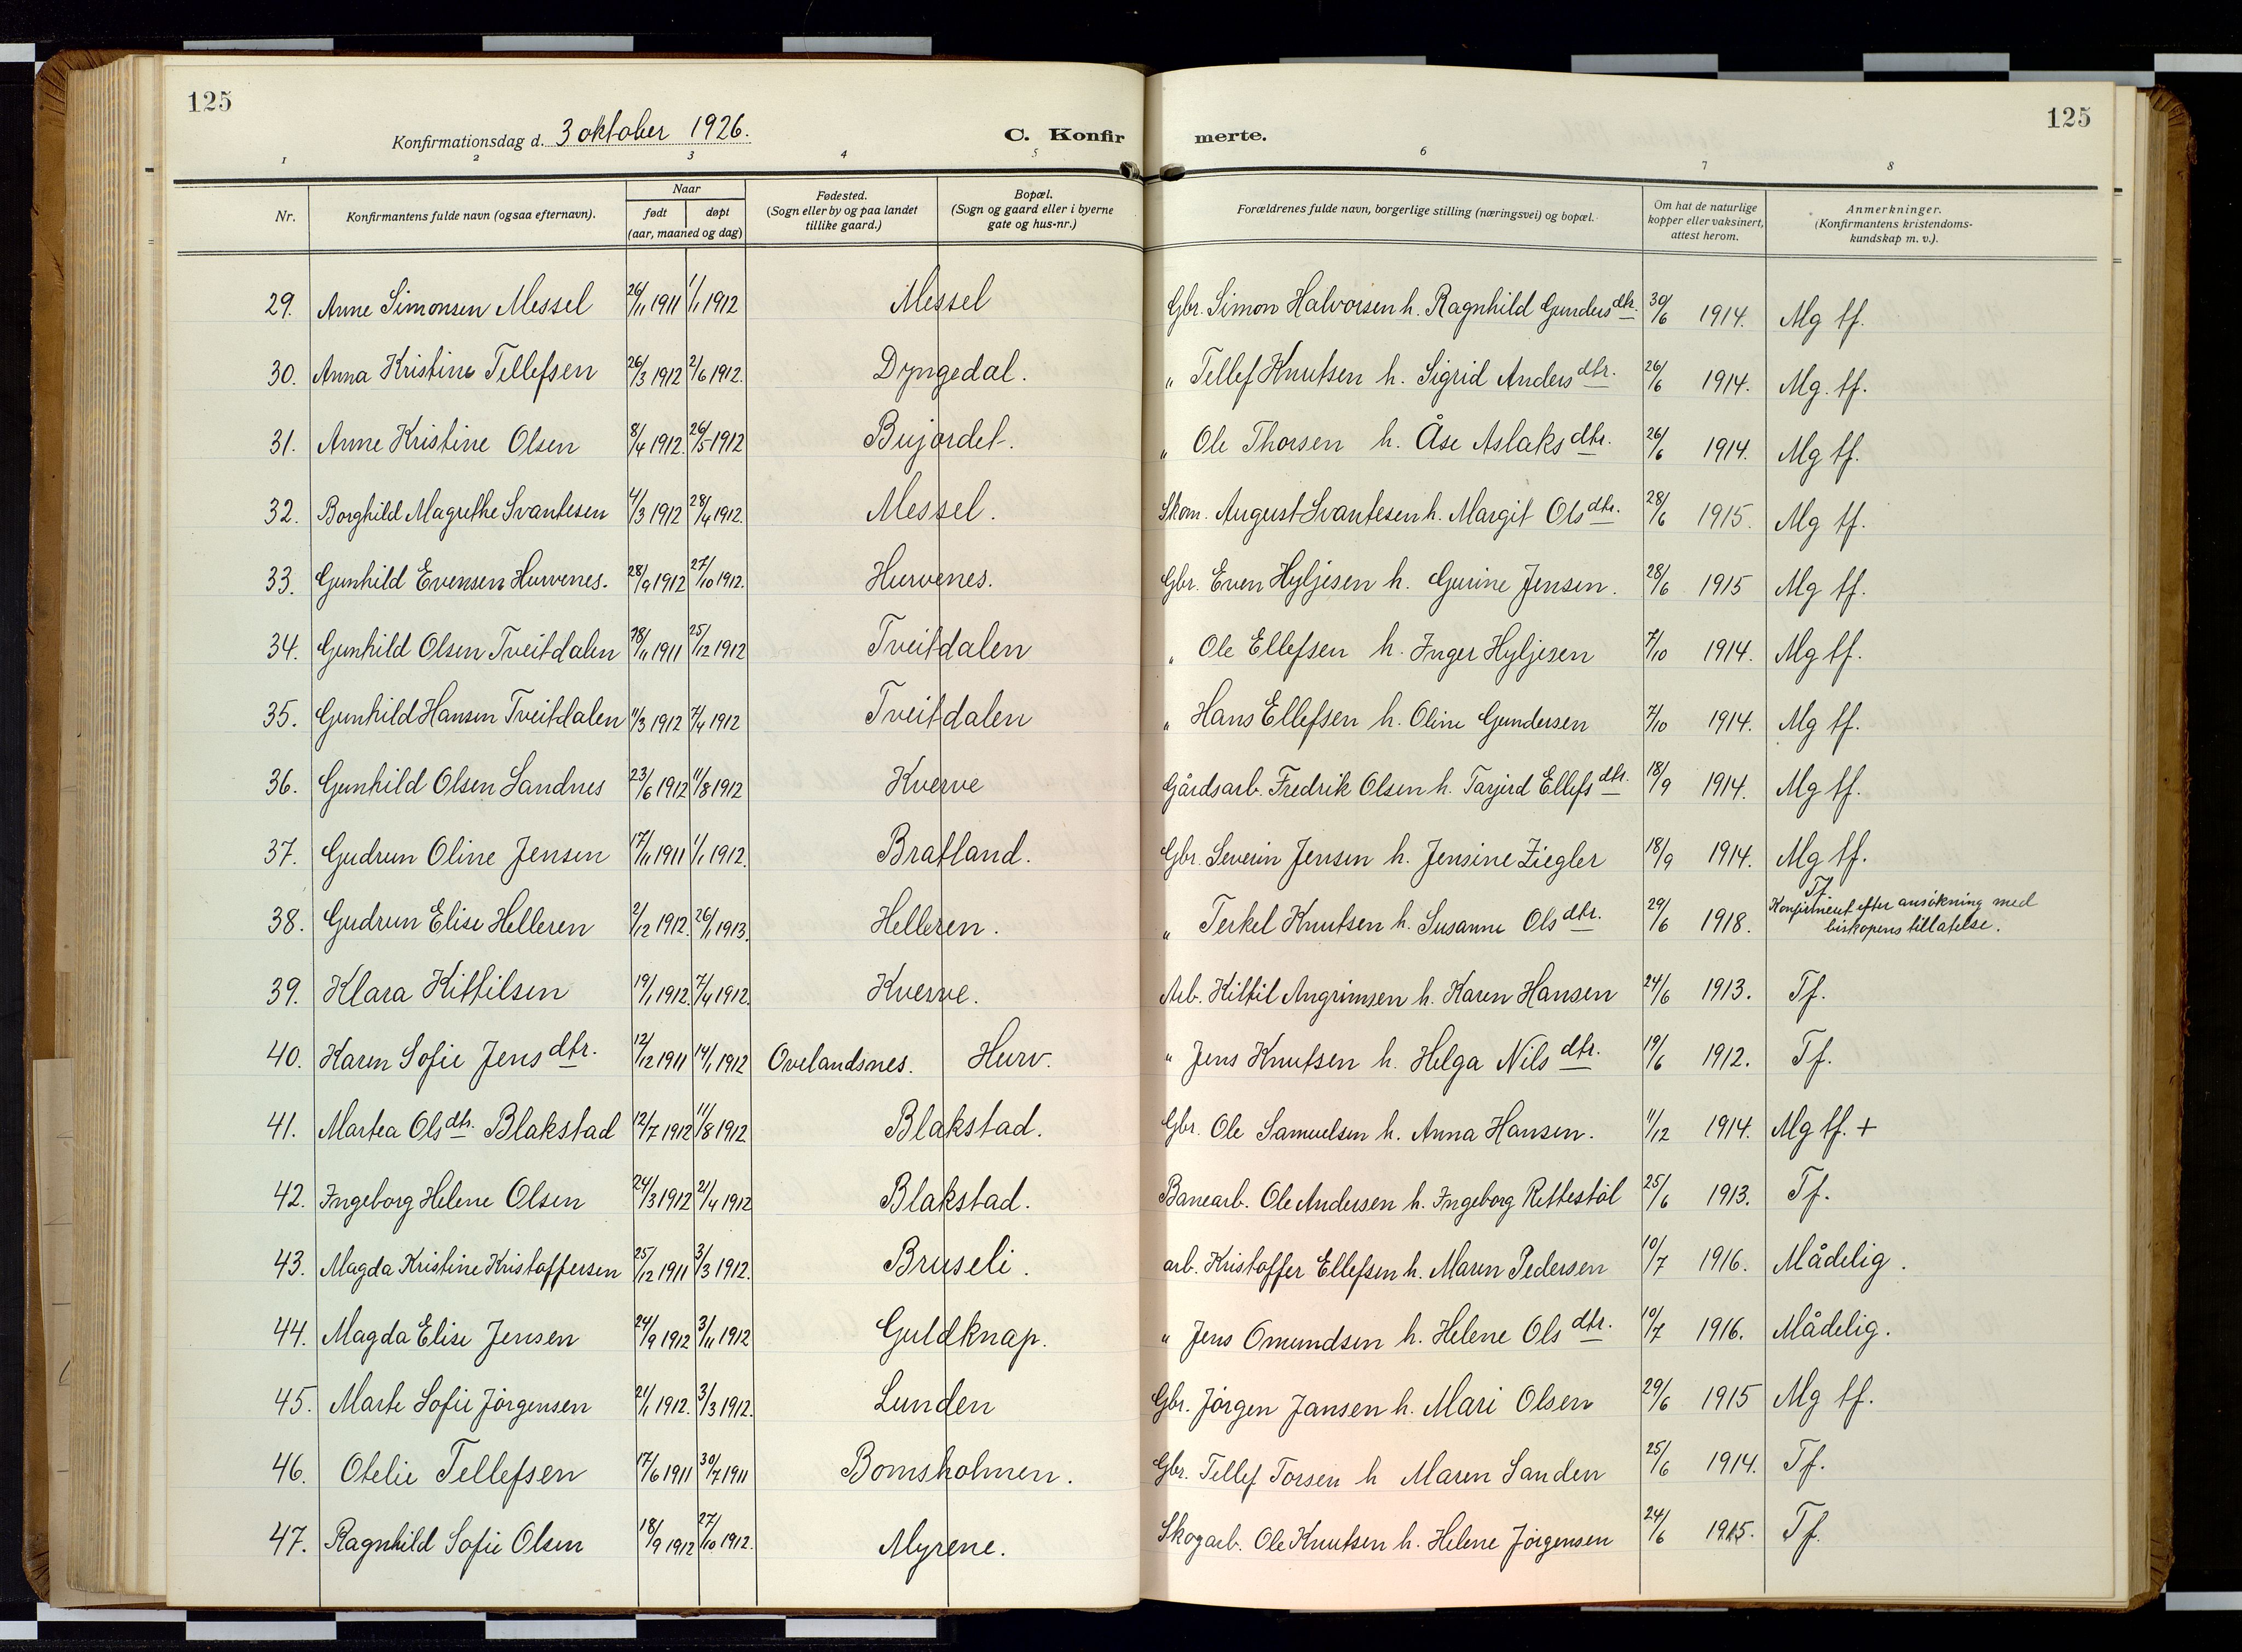 125
125
Konfirmationsdag d. 3 oktober 1926.
C. Konfirmerte.
1 2 3 4 5 6 7 8
Nr.
Konfirmantens fulde navn (ogsaa efternavn).
Naar
født døpt
(aar, maaned og dag)
Fødested.
(Sogn eller by og paa landet
tillike gaard.)
Bopæl.
(Sogn og gaard eller i byerne
gate og hus-nr.)
Forældrenes fulde navn, borgerlige stilling (næringsvei) og bopæl.
Om hat de naturlige
kopper eller vaksinert,
attest herom.
Anmerkninger.
(Konfirmantens kristendoms-
kundskap m. v.).
29. Anne Simonsen Messel 26/11 1911 1/1 1912 Messel Gbr. Simon Halvorsen h. Ragnhild Gunders dtr. 30/6 1914. Mg tf.
30. Anna Kristine Tellefsen 26/3 1912 2/6 1912. Dyngedal. " Tellef Knutsen h. Sigrid Anders dtr. 26/6 1914. Mg. tf.
31. Anne Kristine Olsen 8/4 1912. 26/5 1912 Bujordet. " Ole Thorsen h. Åse Aslaks dtr. 26/6 1914. Mg tf.
32. Borghild Magrethe Svantesen 4/3 1912 28/4 1912. Messel. Skom. August Svantesen h. Margit Ols dtr. 28/6 1915. Mg tf.
33. Gunhild Evensen Hurvenes. 28/9 1912 27/10 1912. Hurvenes. Gbr. Even Hyljesen h. Gurine Jensen. 28/6 1915 Mg tf.
34. Gunhild Olsen Tveitdalen 18/11 1911 25/12 1912 Tveitdalen " Ole Ellefsen h. Inger Hyljesen 7/10 1914. Mg tf.
35. Gunhild Hansen Tveitdalen 11/3 1912 7/4 1912 Tveitdalen " Hans Ellefsen h. Oline Gundersen 7/10 1914. Mg tf.
36. Gunhild Olsen Sandnes 23/6 1912 11/8 1912 Kverve Gårdsarb. Fredrik Olsen h. Tarjerd Ellefs dtr. 18/9 1914. Mg tf.
37. Gudrun Oline Jensen 17/11 1911 1/1 1912. Bratland. Gbr. Severin Jensen h. Jensine Ziegler 18/9 1914. Mg tf.
38. Gudrun Elise Helleren 2/12 1912. 26/1 1913. Helleren. " Terkel Knutsen h. Susanne Ols dtr. 29/6 1918. Tf.
Konfirmert efter ansökning med
biskopens tillatelse.
39. Klara Kittilsen 19/1 1912. 7/4 1912. Kverve. Arb. Kittil Angrimsen h. Karen Hansen 24/6 1913. Tf.
40. Karen Sofie Jens dtr. 12/12 1911 14/1 1912 Ovelandsnes. Hurv. " Jens Knutsen h. Helga Nils dtr. 19/6 1912. Tf.
41. Martea Ols dtr. Blakstad 12/7 1912 11/8 1912 Blakstad. Gbr. Ole Samuelsen h. Anna Hansen. 11/12 1914. Mg tf. +
42. Ingeborg Helene Olsen 24/3 1912 21/4 1912 Blakstad. Banearb. Ole Andersen h. Ingeborg Rettestöl 25/6 1913. Tf.
43. Magda Kristine Kristoffersen 25/12 1911 3/3 1912. Bruseli. arb. Kristoffer Ellefsen h. Maren Pedersen 10/7 1916. Mådelig.
44. Magda Elise Jensen 24/9 1912 3/11 1912 Guldknap. " Jens Omundsen h. Helene Ols dtr. 10/7 1916. Mådelig.
45. Marte Sofie Jörgensen 21/1 1912. 3/3 1912. Lunden Gbr. Jörgen Jansen h. Mari Olsen 29/6 1915 Mg tf.
46. Otelie Tellefsen 17/6 1911 30/7 1911 Bomsholmen. Gbr. Tellef Torsen h Maren Sanden 25/6 1914. Tf.
47. Ragnhild Sofie Olsen 18/9 1912 27/10 1912. Myrene. Skogarb. Ole Knutsen h. Helene Jörgensen 24/6 1915. Tf.